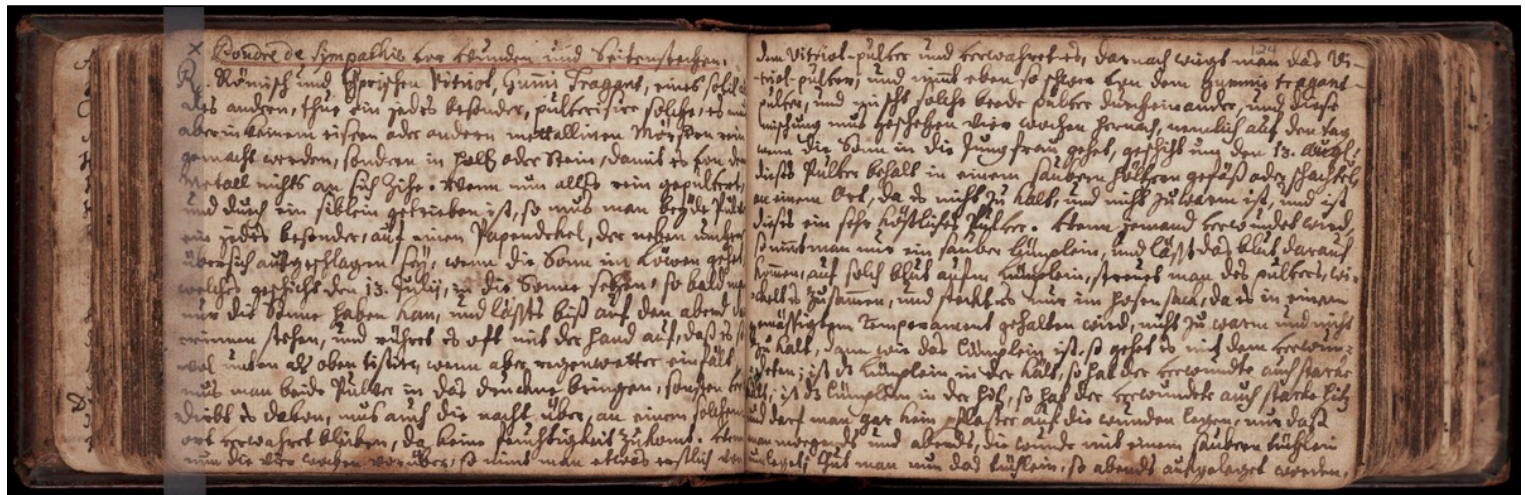 Poudre de Simpathie vor Wunden und Seitenstechen.
Römisch und Cyprischen Vitriol, Gum̄i Tragant, eines so viel
des andern, thue ein jedes besonder, pulverisire solches, es mus
aber in keinem eisern oder andern metallinen Mörschern rein
gemacht werden, sondern in Holtz oder Stein, damit es von dem
Metall nichts an sich zihe. Wenn nun alles rein gepulvert,
und durch ein siblein getrieben ist, so mus man beyde Pulver
ein jedes besonder, auf einen Papendekel, der neben umher
übersich aufgeschlagen sey, wenn die Sonn im Löwen gehet
welches geschicht den 13. Julij, in die Sonne setzen, so bald man
nur die Sonne haben kan, und lässts biß auf den abend da
rinnen stehen, und rühret es oft mit der hand auf, daß es so
wol unten als oben wenn aber regenwetter einfält,
mus man beide Pulver in das druckene bringen, sonsten ver
dirbt es davon, mus auch die nacht über, an einem solchen
ort verwahret bleiben, da keine feuchtigkeit zukomt. Wenn
nun die vier wochen vorüber, so nimt man etwas erstlich von
124
dem Vitriol-pulver und verwahret es, darnach wigt man das Vi-
triol-pulver, und nimt eben so schwer von dem Gummi tragant-
pulver, und mischt solche beede pulver durcheinander, und diese
mischung mus geschehen vier wochen hernach, nemlich auf den tag
wenn die Sonn in die Jungfrau gehet, geschicht um den 13. Augst,
dieses Pulver behalt in einem saubern höltzern gefäß oder schachtel,
an einem Ort, da es nicht zu kalt, und nicht zu warm ist, und ist
dieses ein sehr köstliches Pulver. Wenn jemand verwundet wird,
so nimt man nur ein sauber Lümplein, und läst das blut darauf
kommen, auf solch blut aufm Lümplein, streuet man des pulvers, wi-
ckelt es zusammen, und steckt es nur im hosensack, da es in einem
gemässigten Temperament gehalten wird, nicht zu warm und nicht
zu kalt, dann wie das Lümplein ist, so gehet es mit dem verwun-
deten; ist dz Lümplein in der kält, so hat der verwundte auch starke
kält, ist dz Lümplein in der hitz, so hat der verwundete auch starke hitz
und darf man gar kein pflaster auf die wunden legen, nur daß
man morgends und abends, die wunde mit einem saubern tüchlein
umleget; thut man nun das tüchlein, so abends aufgeleget worden,